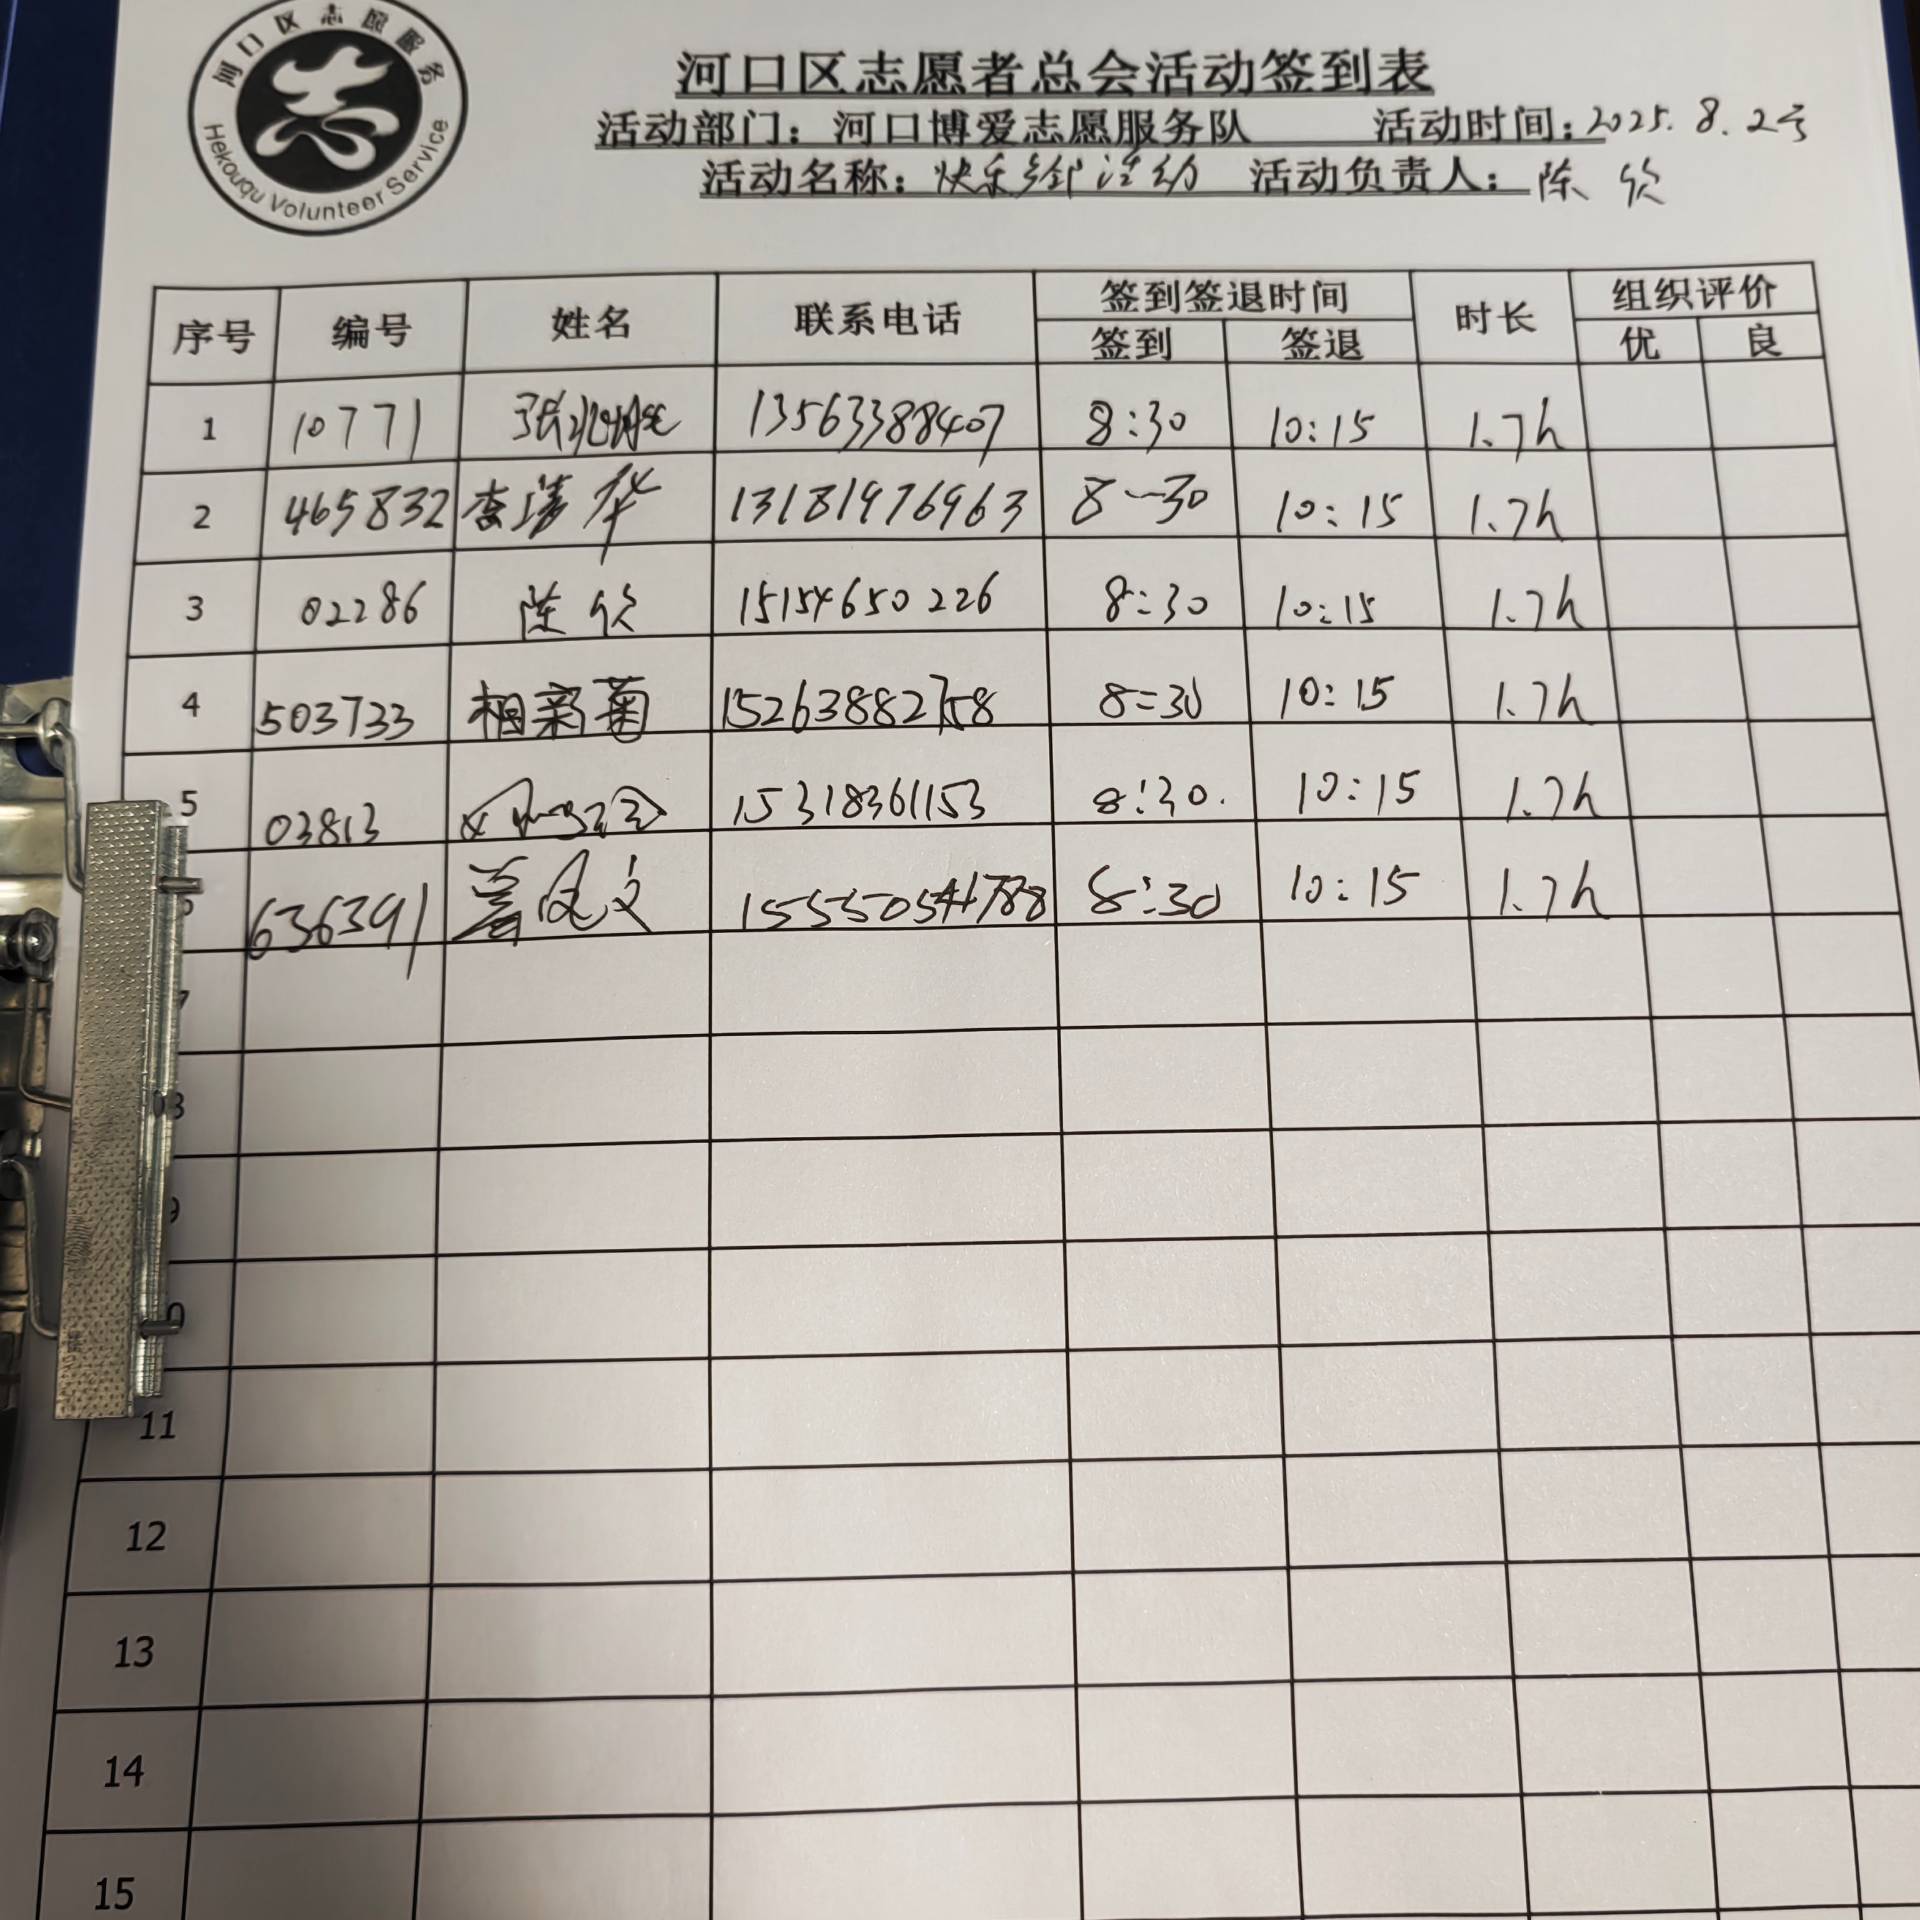 河口区志愿服务
Hekouqu Volunteer Service
河口区志愿者总会活动签到表
活动部门：河口博爱志愿服务队 活动时间：2025.8.2号
活动名称：快乐乡邻活动 活动负责人：陈欣
序号 编号 姓名 联系电话 签到签退时间 时长 组织评价
签到 签退 优 良
1 10771 张 13563388407 8:30 10:15 1.7h
2 465832 李清华 13181976963 8-30 10:15 1.7h
3 02286 陈欣 15154650226 8:30 10:15 1.7h
4 503733 相新菊 15263882758 8:30 10:15 1.7h
5 03813 15318361153 8:30. 10:15 1.7h
6 636391 文 8:30 10:15 1.7h
7
8
9
11
12
13
14
15